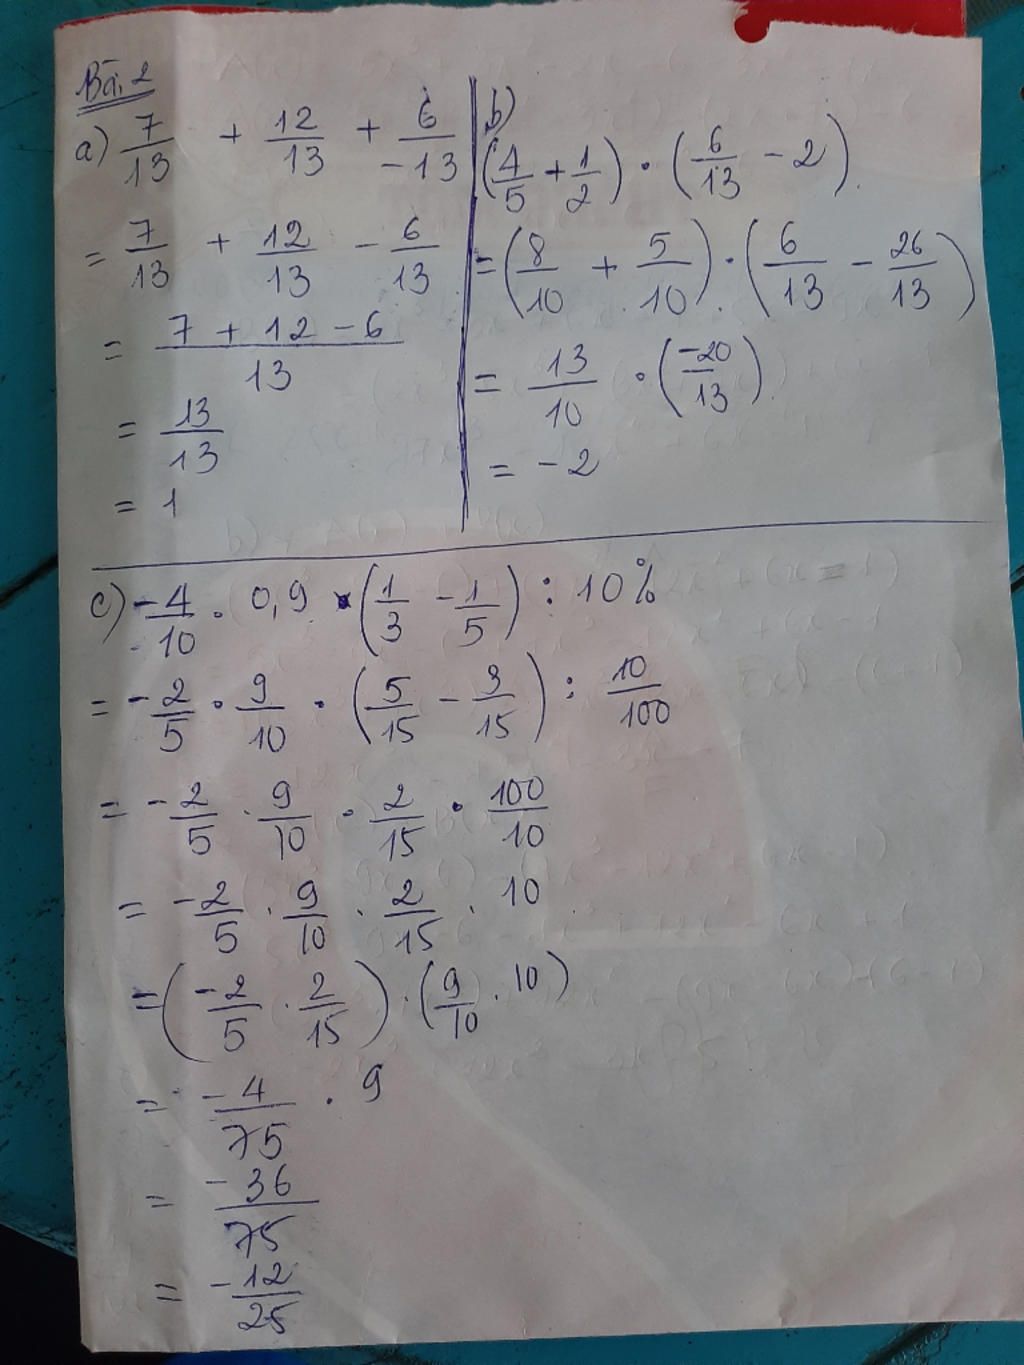 Bài 2
a) 7/13 + 12/13 + 6/-13
= 7/13 + 12/13 - 6/13
= (7 + 12 - 6)/13
= 13/13
= 1
b)
(4/5 + 1/2) . (6/13 - 2)
= (8/10 + 5/10) . (6/13 - 26/13)
= 13/10 . (-20/13)
= -2
c) -4/10 . 0,9 . (1/3 - 1/5) : 10%
= -2/5 . 9/10 . (5/15 - 3/15) : 10/100
= -2/5 . 9/10 . 2/15 . 100/10
= -2/5 . 9/10 . 2/15 . 10
= (-2/5 . 2/15) . (9/10 . 10)
= -4/75 . 9
= -36/75
= -12/25